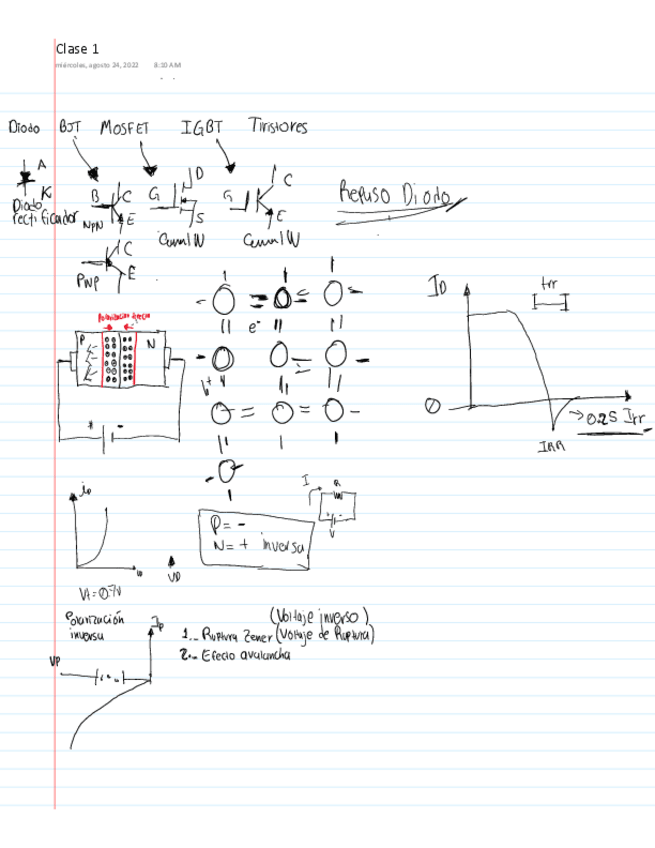 Clase 1
miércoles, agosto 24, 2022 8:10 AM
Diodo BJT MOSFET IGBT Tiristores
A
K
Diodo
rectificador
B C
E
NPN
G D
S
Canal N
G C
E
Canal N
Repaso Diodo
C
E
PNP
P N
+ -
e-
ID
trr
0
0.25 Irr
IRR
iD
VD
Vt=0.7V
P= -
N= + inversa
I R
V
Polarización
inversa
ID
VP
(Voltaje inverso)
1.- Ruptura Zener (Voltaje de Ruptura)
2.- Efecio avalancha